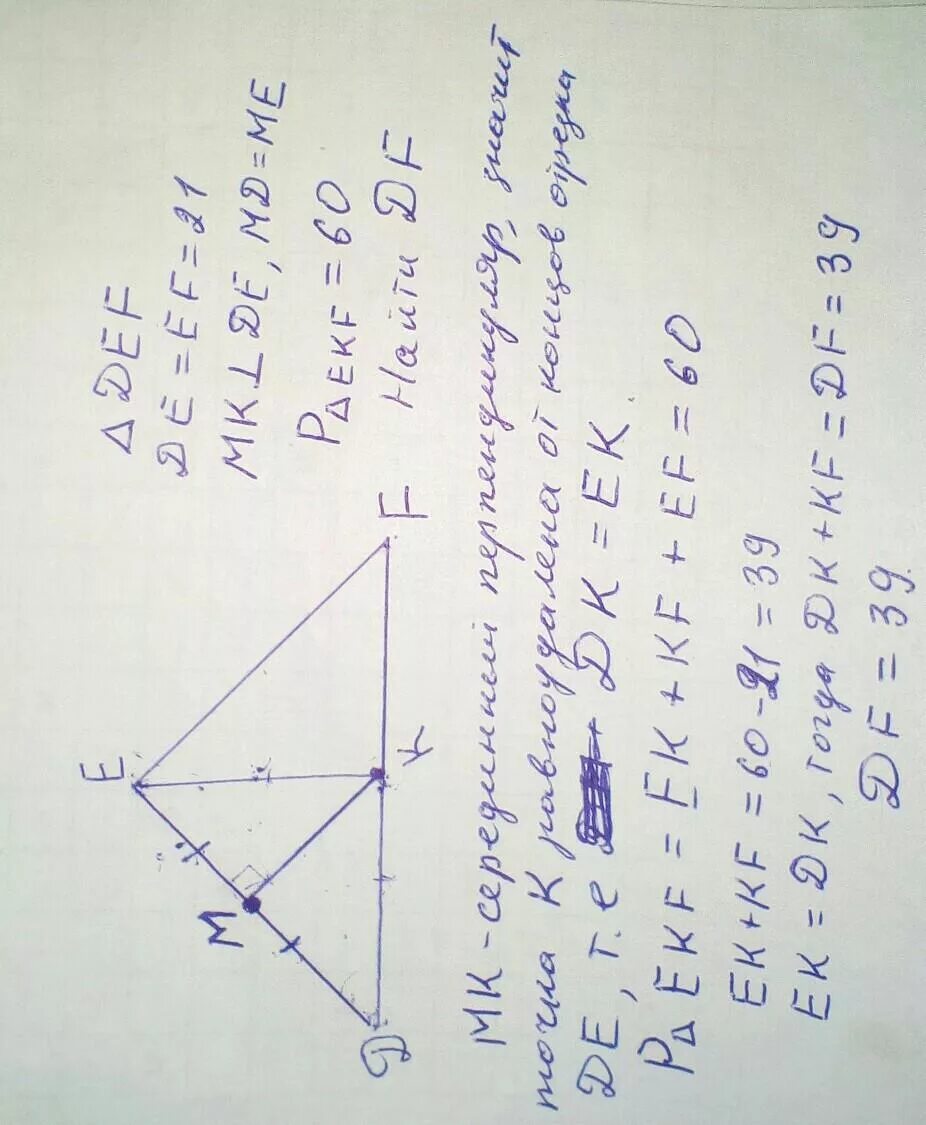 △DEF
DE = EF = 21
MK⊥DE, MD=ME
P△EKF = 60
Найти DF
E
M
D
K
F
MK - серединный перпендикуляр, значит
точка K равноудалена от концов отрезка
DE, т.е DK = EK
P△EKF = EK + KF + EF = 60
EK+KF = 60-21 = 39
EK = DK, тогда DK+KF = DF = 39
DF = 39.